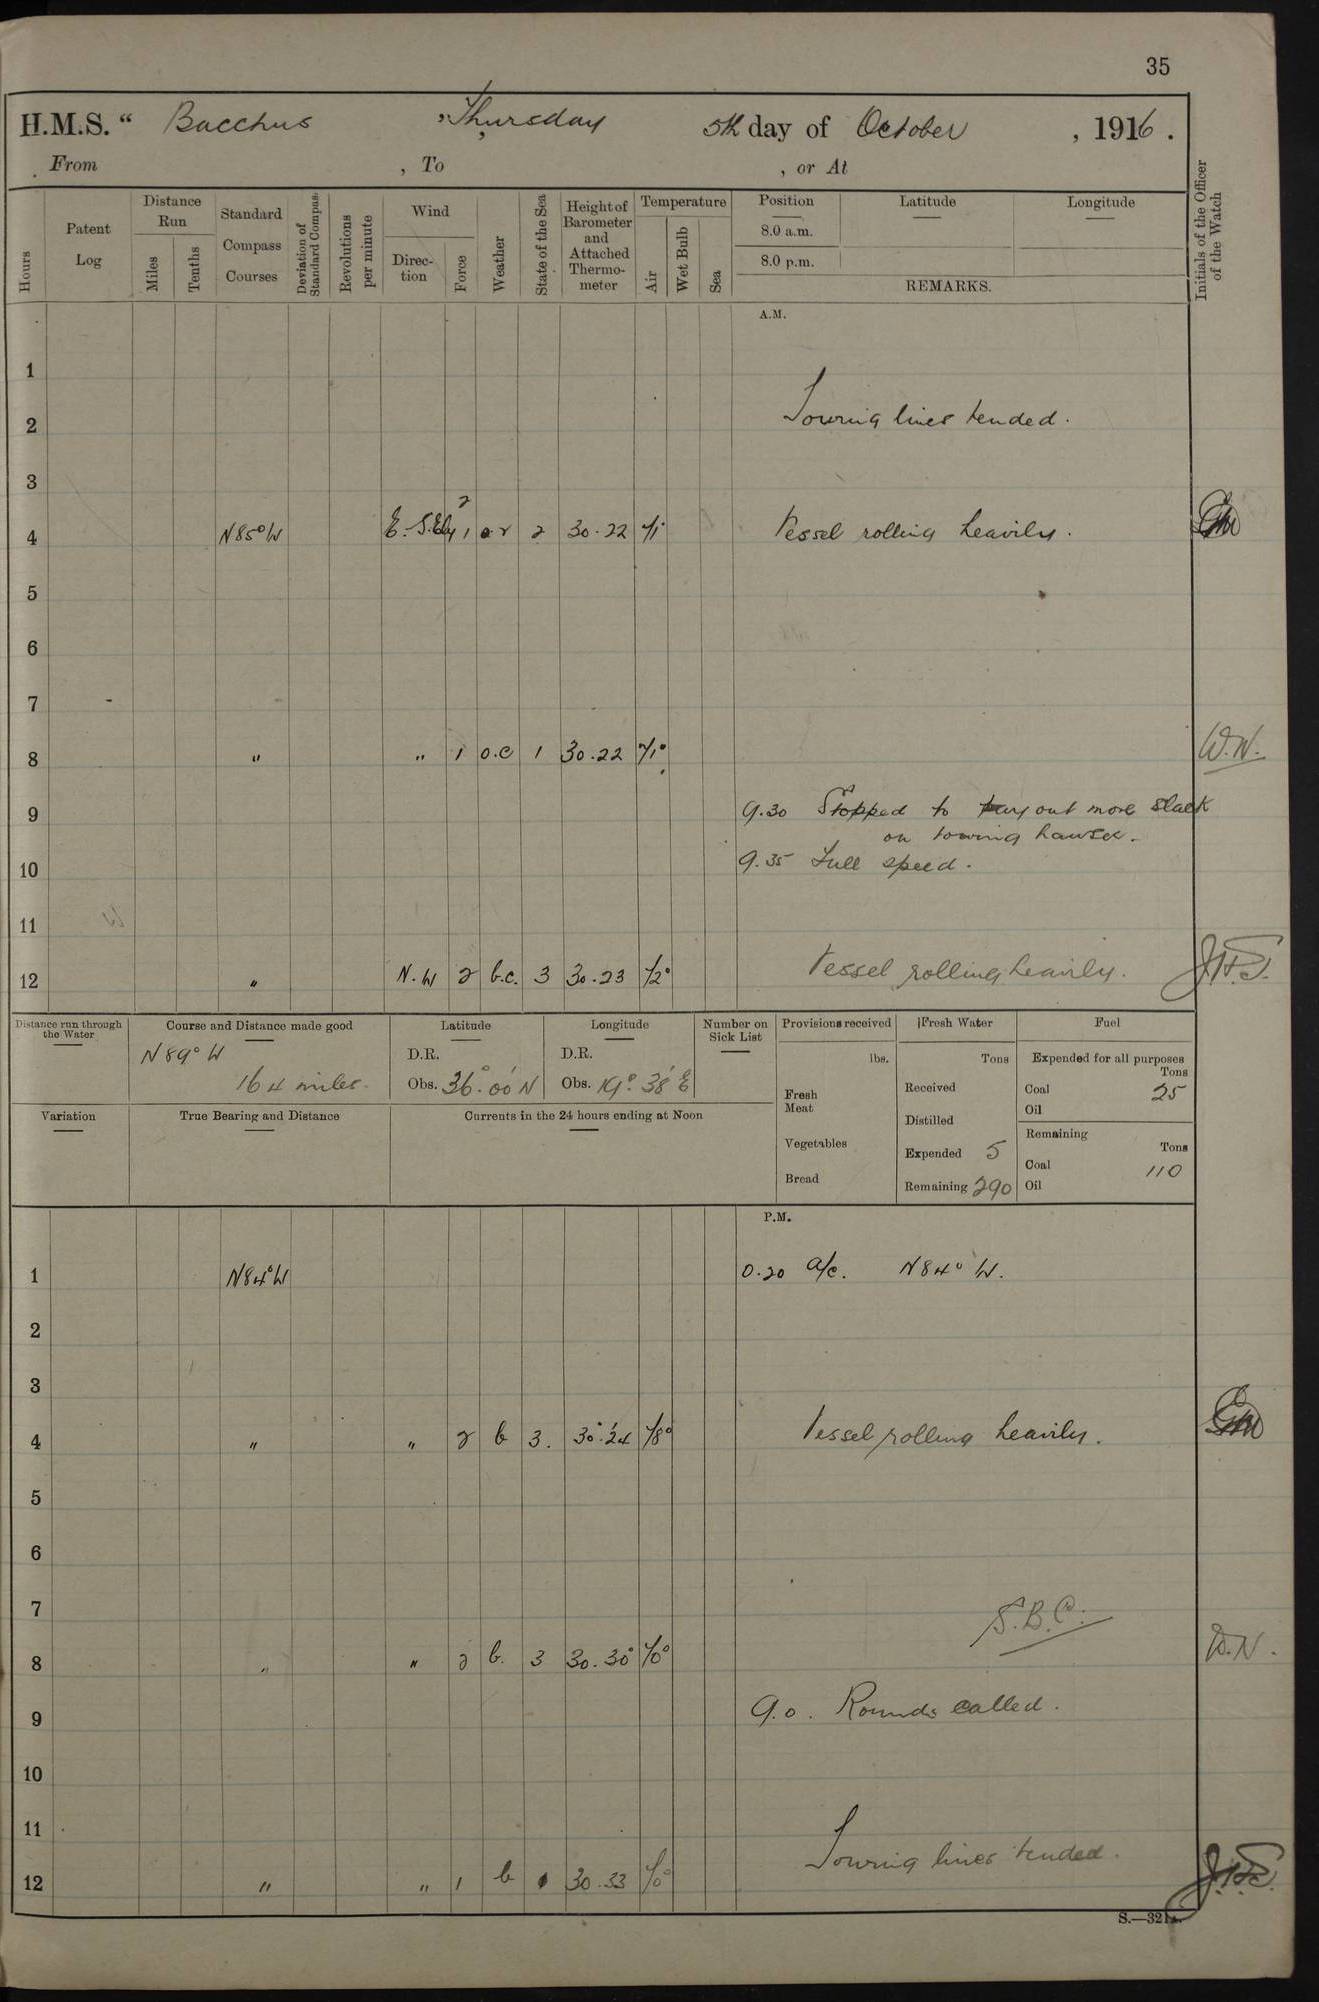 35
H.M.S. “ Bacchus ” Thursday 5th day of October , 1916 .
From , To , or At
Hours
Patent Log
Distance Run
Miles
Tenths
Standard Compass Courses
Deviation of Standard Compass
Revolutions per minute
Wind
Direction
Force
Weather
State of the Sea
Height of Barometer and Attached Thermometer
Temperature
Air
Wet Bulb
Sea
Position
8.0 a.m.
8.0 p.m.
Latitude
Longitude
REMARKS.
Initials of the Officer of the Watch
A.M.
1
2 Towing lines tended.
3
4 N85°W E.S.Ely 2 30.22 Vessel rolling heavily.
5
6
7
8 " " 1 o.c 1 30.22 71° W.N.
9 9.30 Stopped to pay out more slack
on towing hawser.
10 9.35 Full speed.
11
12 " N.W 2 b.c. 3 30.23 72° Vessel rolling heavily. J.H.S.
Distance run through the Water
Course and Distance made good
N 89° W
164 miles.
Latitude
D.R.
Obs. 36° 00' N
Longitude
D.R.
Obs. 19° 38' E
Number on Sick List
Provisions received
lbs.
Fresh Meat
Vegetables
Bread
Fresh Water
Tons
Received
Distilled
Expended 5
Remaining 290
Fuel
Expended for all purposes
Tons
Coal 25
Oil
Remaining
Tons
Coal 110
Oil
Variation
True Bearing and Distance
Currents in the 24 hours ending at Noon
P.M.
1 N84°W 0.20 a/c. N84° W.
2
3
4 " " 2 b 3. 30.24 78° Vessel rolling heavily.
5
6
7 S.B.C.
8 " " 2 b. 3 30.30 70° W.N.
9 9.0. Rounds called.
10
11
12 " " 1 b 30.33 70° Towing lines tended. J.H.S.
S.—321a.